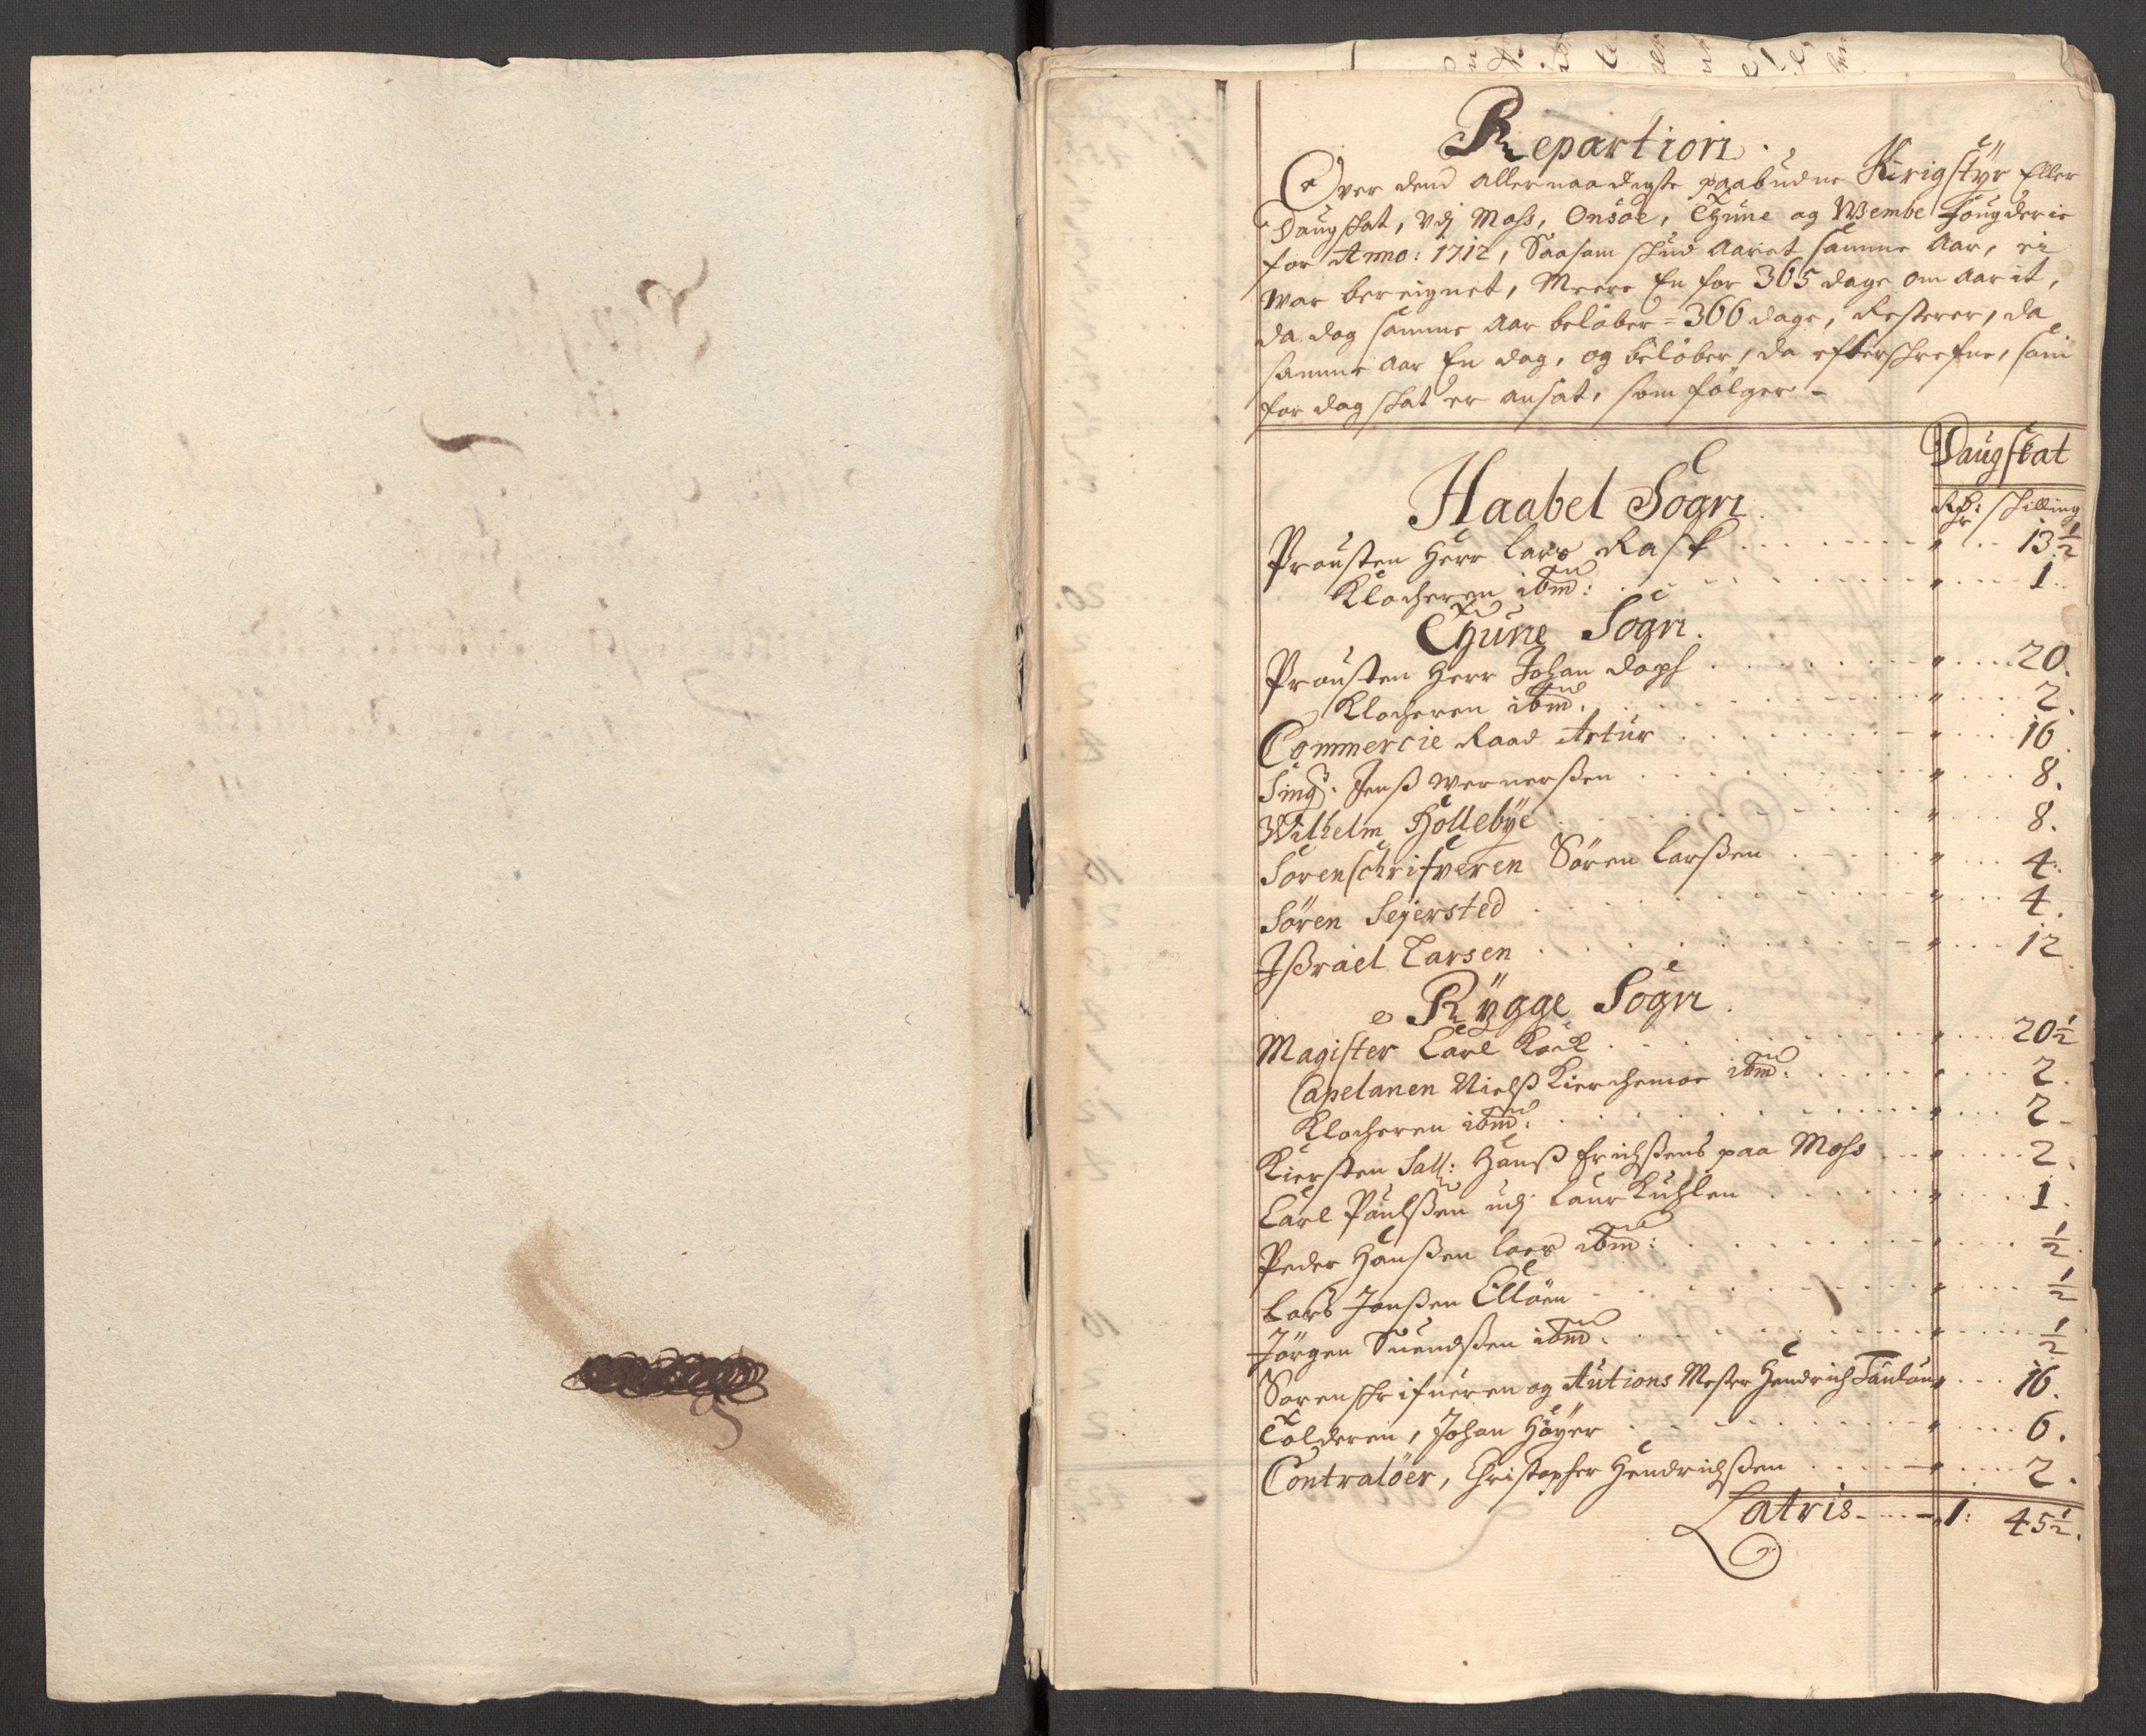 Repartion.
Over dend allernaadigste paabudne Krigstÿr Eller
Daugskat, Vdj Moss, Onsöe, Thune og Wembe Fougderie
for Anno: 1712, Saasom skud Aaret samme Aar, ei
war bereignet, Meere En for 365 dage om Aarit,
da dog samme Aar belöber = 366 dage, Resterer, da
samme Aar En dag, og belöber, da efterschrefne, som
for dag skat er ansat, som fölger -
Daugskat
Haabel Sogn
Rdr: skilling
Prousten Herr Lars Rask " 13½
Klocheren ibm: " 1.
Thune Sogn.
Prousten Herr Johan Doph " 20.
Klocheren ibm. " 2.
Commercie Raad Artur " 16
Sing. Jenss Wernerssen " 8.
Wilhelm Hollebÿe " 8.
Sorenschrifveren Sören Larssen " 4.
Sören Sejersted " 4.
Jssrael Larsen " 12
Rÿgge Sogn.
Magister Carl Kock " 20½
Capelanen Nielss Kierchemoe ibm. " 2.
Klocheren ibm. " 2-
Kiersten Sall: Hanss Erichssens paa Moss " 2.
Carl Poulssen udj Laurkuhlen " 1.
Peder Hanssen Loes ibm: " ½
Lars Jonssen Ellöen " ½
Jörgen Suendssen ibm. " ½
Sorenskrifueren og Autions Mester Hendrich " 16.
Tolderen, Johan Höÿer " 6.
Contralöer, Christopher Hendrichssen " 2.
Latris - 1: 45½.